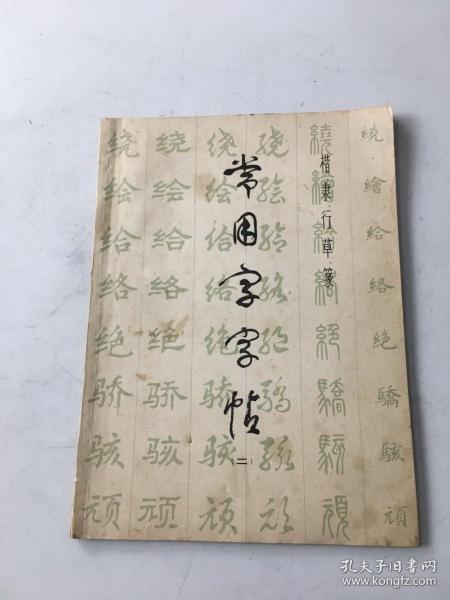 楷·隶·行·草·篆
常用字字帖
二
绕绘给络绝骄骇顽
绕绘给络绝骄骇顽
绕绘给络绝骄骇顽
绕绘给络绝骄骇顽
繞繪給絡絕驕駭頑
繞繪給絡絶驕駭頑
孔夫子旧书网
www.kongfz.com